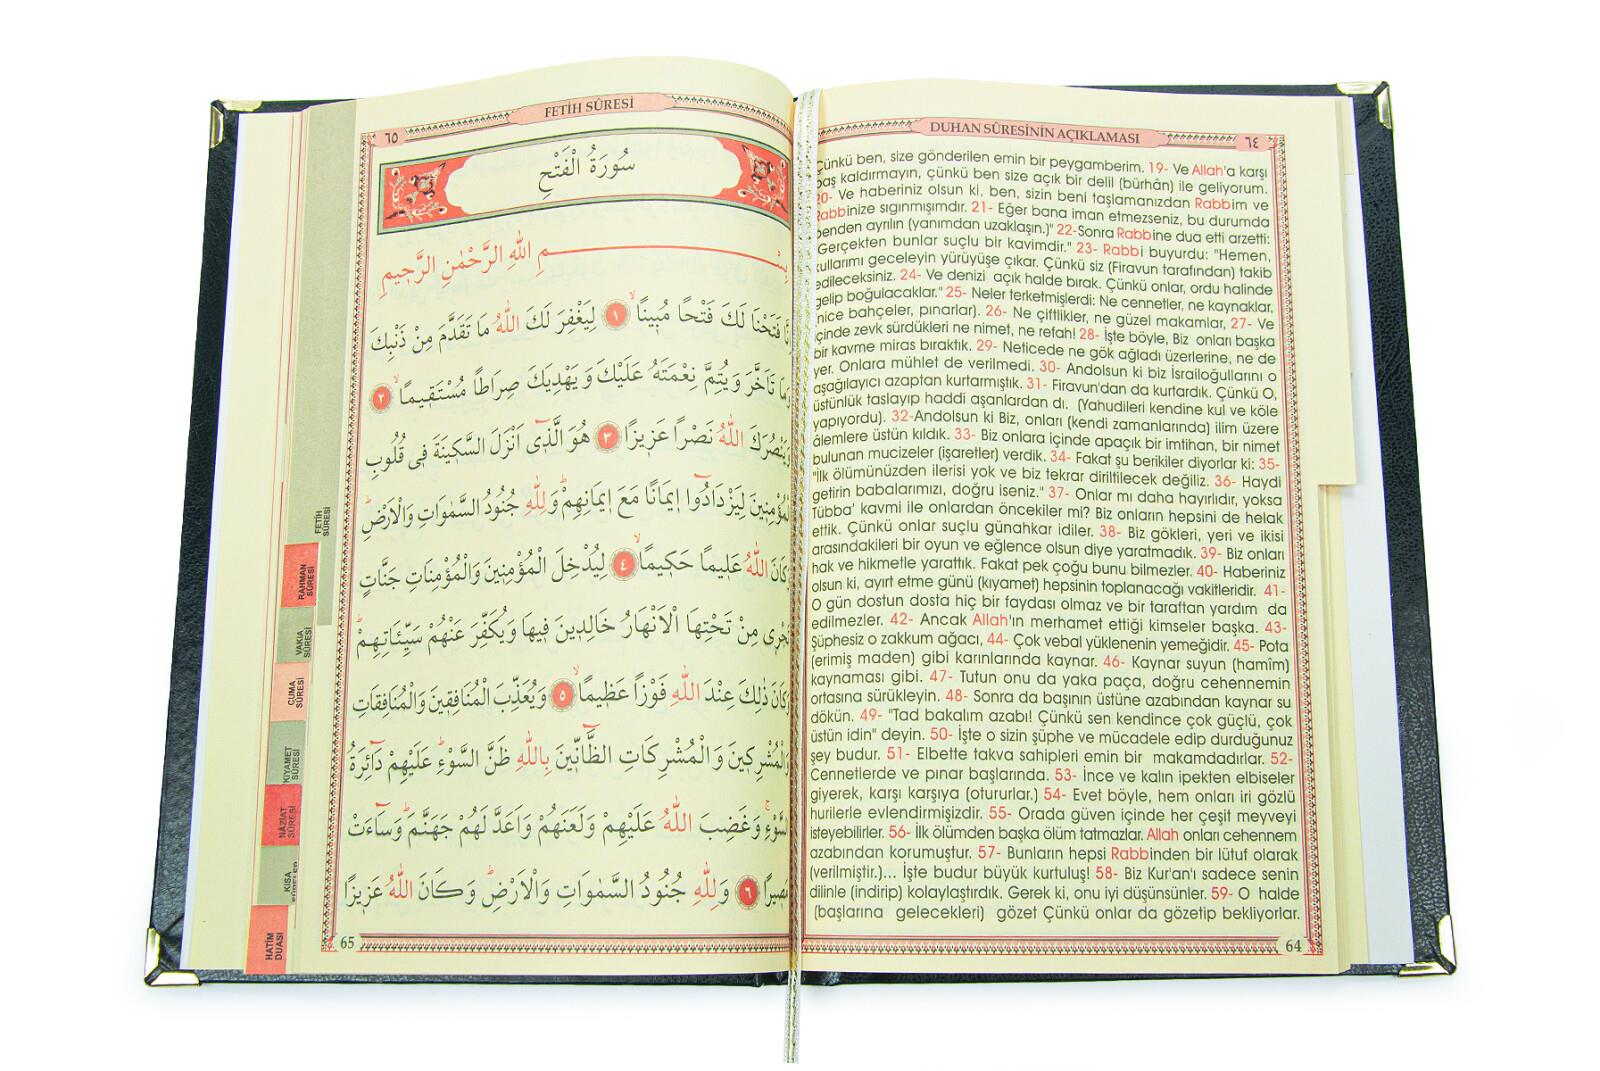 DUHAN SÛRESİNİN AÇIKLAMASI
٦٤
Çünkü ben, size gönderilen emin bir peygamberim. 19- Ve Allah'a karşı
baş kaldırmayın, çünkü ben size açık bir delil (bürhân) ile geliyorum.
20- Ve haberiniz olsun ki, ben, sizin beni taşlamanızdan Rabbim ve
Rabbinize sıgınmışımdır. 21- Eğer bana iman etmezseniz, bu durumda
benden ayrılın (yanımdan uzaklaşın.)" 22-Sonra Rabbine dua etti arzetti:
"Gerçekten bunlar suçlu bir kavimdir." 23- Rabbi buyurdu: "Hemen,
kullarımı geceleyin yürüyüşe çıkar. Çünkü siz (Firavun tarafından) takib
edileceksiniz. 24- Ve denizi açık halde bırak. Çünkü onlar, ordu halinde
gelip boğulacaklar." 25- Neler terketmişlerdi: Ne cennetler, ne kaynaklar,
(nice bahçeler, pınarlar). 26- Ne çiftlikler, ne güzel makamlar, 27- Ve
içinde zevk sürdükleri ne nimet, ne refah! 28- İşte böyle, Biz onları başka
bir kavme miras bıraktık. 29- Neticede ne gök ağladı üzerlerine, ne de
yer. Onlara mühlet de verilmedi. 30- Andolsun ki biz İsrailoğullarını o
aşağılayıcı azaptan kurtarmıştık. 31- Firavun'dan da kurtardık. Çünkü O,
üstünlük taslayıp haddi aşanlardan dı. (Yahudileri kendine kul ve köle
yapıyordu). 32-Andolsun ki Biz, onları (kendi zamanlarında) ilim üzere
âlemlere üstün kıldık. 33- Biz onlara içinde apaçık bir imtihan, bir nimet
bulunan mucizeler (işaretler) verdik. 34- Fakat şu berikiler diyorlar ki: 35-
"İlk ölümünüzden ilerisi yok ve biz tekrar diriltilecek değiliz. 36- Haydi
getirin babalarımızı, doğru iseniz." 37- Onlar mı daha hayırlıdır, yoksa
Tübba' kavmi ile onlardan öncekiler mi? Biz onların hepsini de helak
ettik. Çünkü onlar suçlu günahkar idiler. 38- Biz gökleri, yeri ve ikisi
arasındakileri bir oyun ve eğlence olsun diye yaratmadık. 39- Biz onları
hak ve hikmetle yarattık. Fakat pek çoğu bunu bilmezler. 40- Haberiniz
olsun ki, ayırt etme günü (kıyamet) hepsinin toplanacağı vakitleridir. 41-
O gün dostun dosta hiç bir faydası olmaz ve bir taraftan yardım da
edilmezler. 42- Ancak Allah'ın merhamet ettiği kimseler başka. 43-
Şüphesiz o zakkum ağacı, 44- Çok vebal yüklenenin yemeğidir. 45- Pota
(erimiş maden) gibi karınlarında kaynar. 46- Kaynar suyun (hamîm)
kaynaması gibi. 47- Tutun onu da yaka paça, doğru cehennemin
ortasına sürükleyin. 48- Sonra da başının üstüne azabından kaynar su
dökün. 49- "Tad bakalım azabı! Çünkü sen kendince çok güçlü, çok
üstün idin" deyin. 50- İşte o sizin şüphe ve mücadele edip durduğunuz
şey budur. 51- Elbette takva sahipleri emin bir makamdadırlar. 52-
Cennetlerde ve pınar başlarında. 53- İnce ve kalın ipekten elbiseler
giyerek, karşı karşıya (otururlar.) 54- Evet böyle, hem onları iri gözlü
hurilerle evlendirmişizdir. 55- Orada güven içinde her çeşit meyveyi
isteyebilirler. 56- İlk ölümden başka ölüm tatmazlar. Allah onları cehennem
azabından korumuştur. 57- Bunların hepsi Rabbinden bir lütuf olarak
(verilmiştir.)... İşte budur büyük kurtuluş! 58- Biz Kur'an'ı sadece senin
dilinle (indirip) kolaylaştırdık. Gerek ki, onu iyi düşünsünler. 59- O halde
(başlarına gelecekleri) gözet Çünkü onlar da gözetip bekliyorlar.
64
FETİH SÛRESİ
٦٥
سُورَةُ الْفَتْحِ
بِسْمِ اللّٰهِ الرَّحْمٰنِ الرَّحٖيمِ
اِنَّا فَتَحْنَا لَكَ فَتْحًا مُبٖينًاۙ ١ لِيَغْفِرَ لَكَ اللّٰهُ مَا تَقَدَّمَ مِنْ ذَنْبِكَ
وَمَا تَاَخَّرَ وَيُتِمَّ نِعْمَتَهُ عَلَيْكَ وَيَهْدِيَكَ صِرَاطًا مُسْتَقٖيمًاۙ ٢
وَيَنْصُرَكَ اللّٰهُ نَصْرًا عَزٖيزًا ٣ هُوَ الَّذٖٓى اَنْزَلَ السَّكٖينَةَ فٖى قُلُوبِ
الْمُؤْمِنٖينَ لِيَزْدَادُٓوا اٖيمَانًا مَعَ اٖيمَانِهِمْؕ وَلِلّٰهِ جُنُودُ السَّمٰوَاتِ وَالْاَرْضِؕ
وَكَانَ اللّٰهُ عَلٖيمًا حَكٖيمًاۙ ٤ لِيُدْخِلَ الْمُؤْمِنٖينَ وَالْمُؤْمِنَاتِ جَنَّاتٍ
تَجْرٖى مِنْ تَحْتِهَا الْاَنْهَارُ خَالِدٖينَ فٖيهَا وَيُكَفِّرَ عَنْهُمْ سَيِّئَاتِهِمْؕ
وَكَانَ ذٰلِكَ عِنْدَ اللّٰهِ فَوْزًا عَظٖيمًاۙ ٥ وَيُعَذِّبَ الْمُنَافِقٖينَ وَالْمُنَافِقَاتِ
وَالْمُشْرِكٖينَ وَالْمُشْرِكَاتِ الظَّٓانّٖينَ بِاللّٰهِ ظَنَّ السَّوْءِؕ عَلَيْهِمْ دَٓائِرَةُ
السَّوْءِۚ وَغَضِبَ اللّٰهُ عَلَيْهِمْ وَلَعَنَهُمْ وَاَعَدَّ لَهُمْ جَهَنَّمَؕ وَسَٓاءَتْ
مَصٖيرًا ٦ وَلِلّٰهِ جُنُودُ السَّمٰوَاتِ وَالْاَرْضِؕ وَكَانَ اللّٰهُ عَزٖيزًا
65
FETİH
SÛRESİ
RAHMAN
SÛRESİ
VAKIA
SÛRESİ
CUMA
SÛRESİ
KIYAMET
SÛRESİ
NAZİAT
SÛRESİ
KISA
HATİM
DUASI